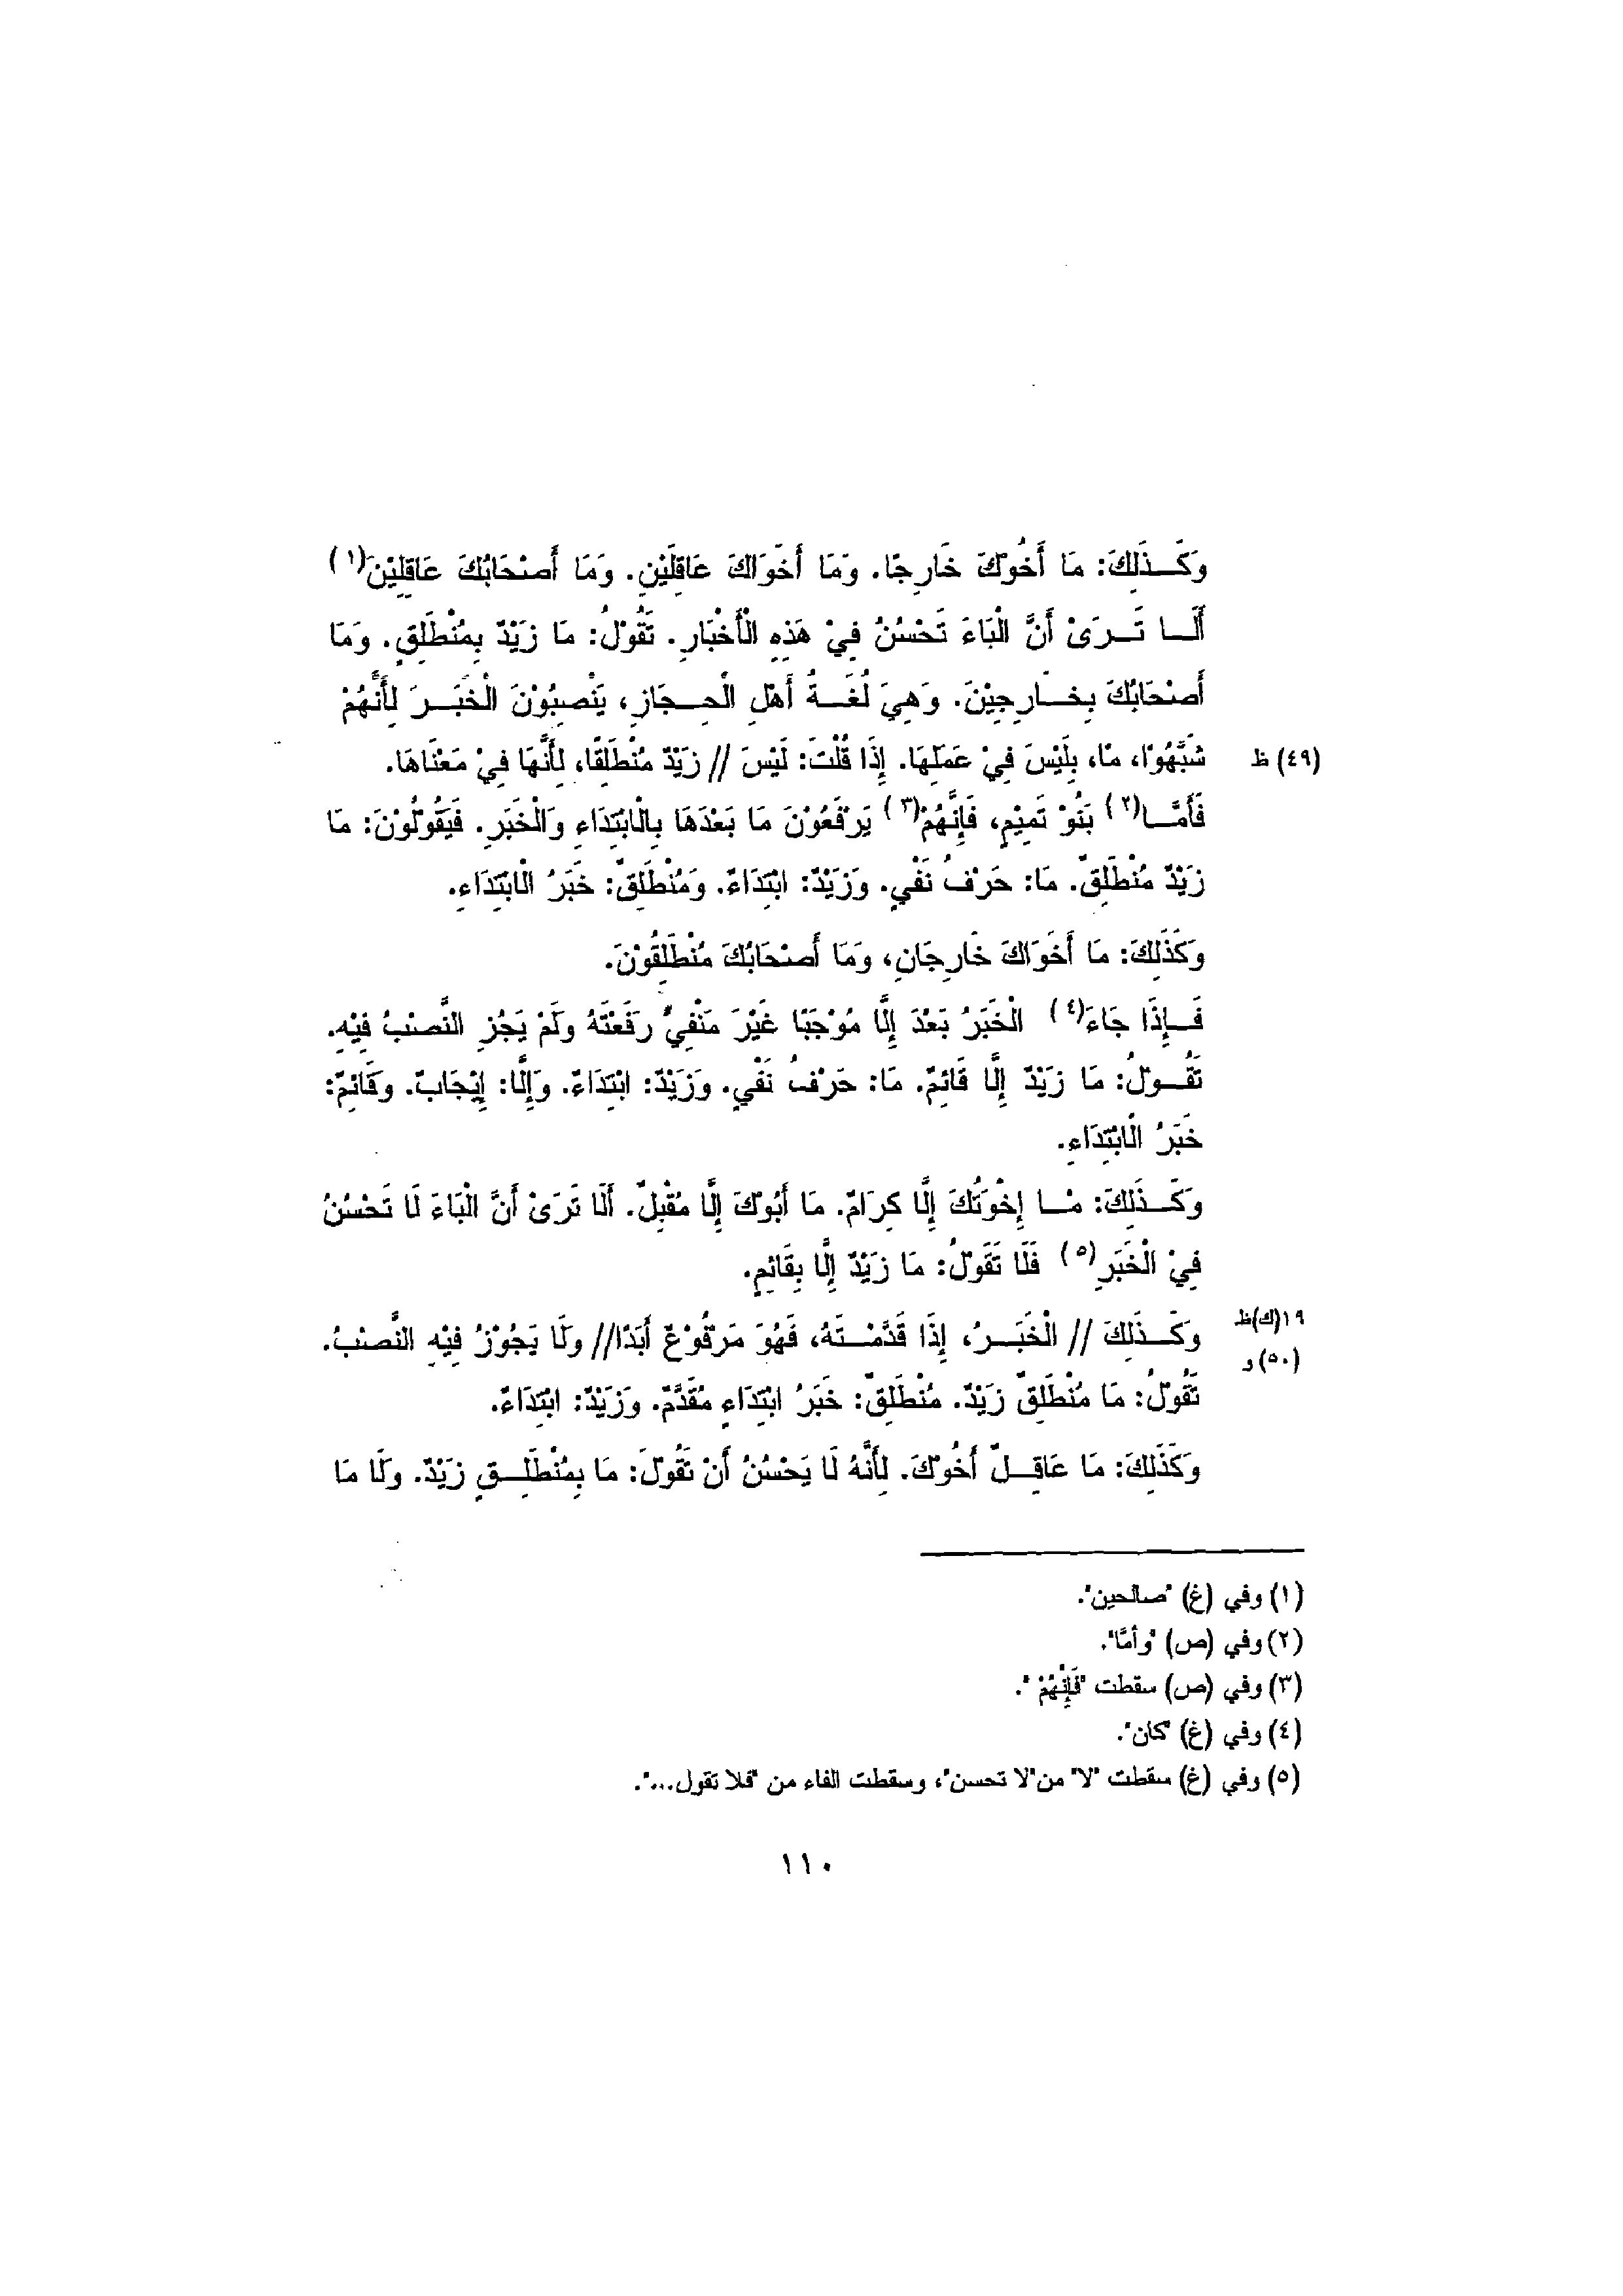 وَكَــذَلِكَ: مَا أَخُوْكَ خَارِجًا. وَمَا أَخَوَاكَ عَاقِلَيْنِ. وَمَا أَصْحَابُكَ عَاقِلِيْنَ(١)
أَلَــا تَــرَىْ أَنَّ الْبَاءَ تَحْسُنُ فِيْ هَذِهِ الْأَخْبَارِ. تَقُوْلُ: مَا زَيْدٌ بِمُنْطَلِقٍ. وَمَا
أَصْحَابُكَ بِخَــارِجِيْنَ. وَهِيَ لُغَــةُ أَهْلِ الْحِــجَازِ، يَنْصِبُوْنَ الْخَبَــرَ لِأَنَّهُمْ
شَبَّهُوْا، مَا، بِلَيْسَ فِيْ عَمَلِهَا. إِذَا قُلْتَ: لَيْسَ // زَيْدٌ مُنْطَلِقًا، لِأَنَّهَا فِيْ مَعْنَاهَا.
(٤٩) ظ
فَأَمَّــا(٢) بَنُوْ تَمِيْمٍ، فَإِنَّهُمْ(٣) يَرْفَعُوْنَ مَا بَعْدَهَا بِالْابْتِدَاءِ وَالْخَبَرِ. فَيَقُوْلُوْنَ: مَا
زَيْدٌ مُنْطَلِقٌ. مَا: حَرْفُ نَفْيٍ. وَزَيْدٌ: ابْتِدَاءٌ. وَمُنْطَلِقٌ: خَبَرُ الْابْتِدَاءِ.
وَكَذَلِكَ: مَا أَخَوَاكَ خَارِجَانِ، وَمَا أَصْحَابُكَ مُنْطَلِقُوْنَ.
فَــإِذَا جَاءَ(٤) الْخَبَرُ بَعْدَ إِلَّا مُوْجَبًا غَيْرَ مَنْفِيٍّ رَفَعْتَهُ وَلَمْ يَجُزِ النَّصْبُ فِيْهِ.
تَقُــوْلُ: مَا زَيْدٌ إِلَّا قَائِمٌ. مَا: حَرْفُ نَفْيٍ. وَزَيْدٌ: ابْتِدَاءٌ. وَإِلَّا: إِيْجَابٌ. وَقَائِمٌ:
خَبَرُ الْابْتِدَاءِ.
وَكَــذَلِكَ: مَــا إِخْوَتُكَ إِلَّا كِرَامٌ. مَا أَبُوْكَ إِلَّا مُقْبِلٌ. أَلَا تَرَىْ أَنَّ الْبَاءَ لَا تَحْسُنُ
فِيْ الْخَبَرِ(٥) فَلَا تَقُوْلُ: مَا زَيْدٌ إِلَّا بِقَائِمٍ.
وَكَــذَلِكَ // الْخَبَــرُ، إِذَا قَدَّمْــتَهُ، فَهُوَ مَرْفُوْعٌ أَبَدًا// وَلَا يَجُوْزُ فِيْهِ النَّصْبُ.
١٩(ك)ظ
(٥٠) و
تَقُوْلُ: مَا مُنْطَلِقٌ زَيْدٌ. مُنْطَلِقٌ: خَبَرُ ابْتِدَاءٍ مُقَدَّمٌ. وَزَيْدٌ: ابْتِدَاءٌ.
وَكَذَلِكَ: مَا عَاقِــلٌ أَخُوْكَ. لِأَنَّهُ لَا يَحْسُنُ أَنْ تَقُوْلَ: مَا بِمُنْطَلِــقٍ زَيْدٌ. وَلَا مَا
(١) وفي (غ) "صالحين".
(٢) وفي (ص) "وأمَّا".
(٣) وفي (ص) سقطت "فَإِنَّهُمْ".
(٤) وفي (غ) "كان".
(٥) وفي (غ) سقطت "لا" من "لا تحسن"، وسقطت الفاء من "فلا تقول...".
١١٠